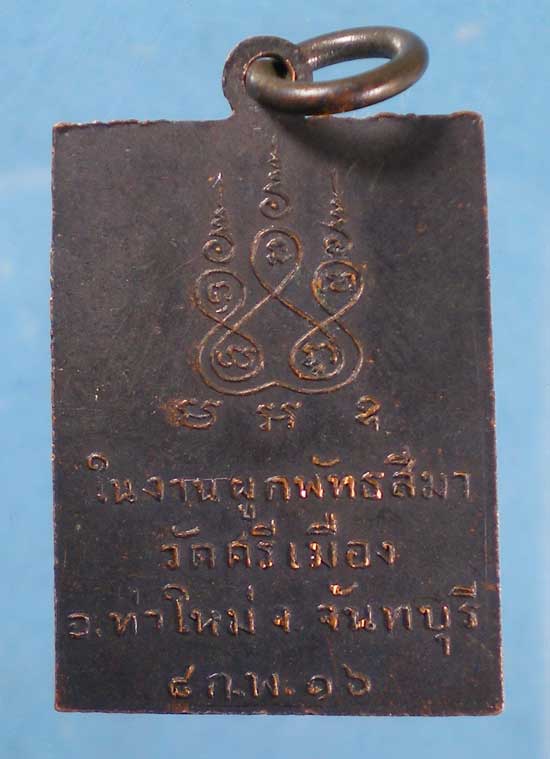 ในงานผูกพัทธสีมา
วัดศรีเมือง
อ.ท่าใหม่ จ.จันทบุรี
๔ ก.พ. ๑๖